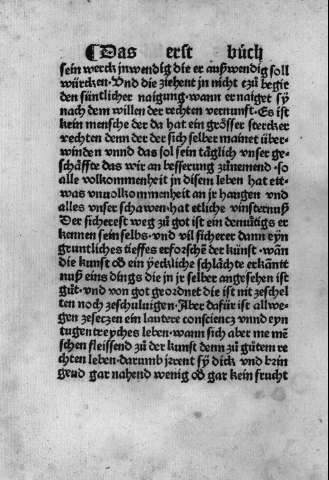 ¶Das erst bůch
sein werck jnwendig die er außwendig soll
würcken· Vnd die ziehent jn nicht czů begir
den süntlicher naigung· wann er naiget sÿ
nach dem willen der rechten vernunft· Es ist
kein mensche der da hat ein grösser stercker
rechten denn der der sich selber mainet über-
winden vnnd das sol sein täglich vnser ge-
schäffte das wir an besserung zůnemend· so
alle volkommenheit in disem leben hat ett-
was vnuolkommenheit an jr hangen vnd
alles vnser schawen· hat etliche vinsternuß
Der sicherest weg zů got ist ein demütigs er
kennen sein selbs· vnd vil sicherer dann eyn
gruntliches tieffes erforschē der kunst· wān
die kunst ob ein yeckliche schlächte erkantt
nuß eins dings die jn jr selber angesehen ist
gůt· vnd von got geordnet die ist nit zeschel
ten noch zeschuluigen· Aber dafür ist allwe-
gen zeseczen ein lautere consciencz vnnd eyn
tugentreyches leben· wann sich aber me mē
schen fleissend zů der kunst denn zů gůtem re
chten leben· darumb jrrent sÿ dick vnd brin
gend gar nahend wenig ob gar kein frucht